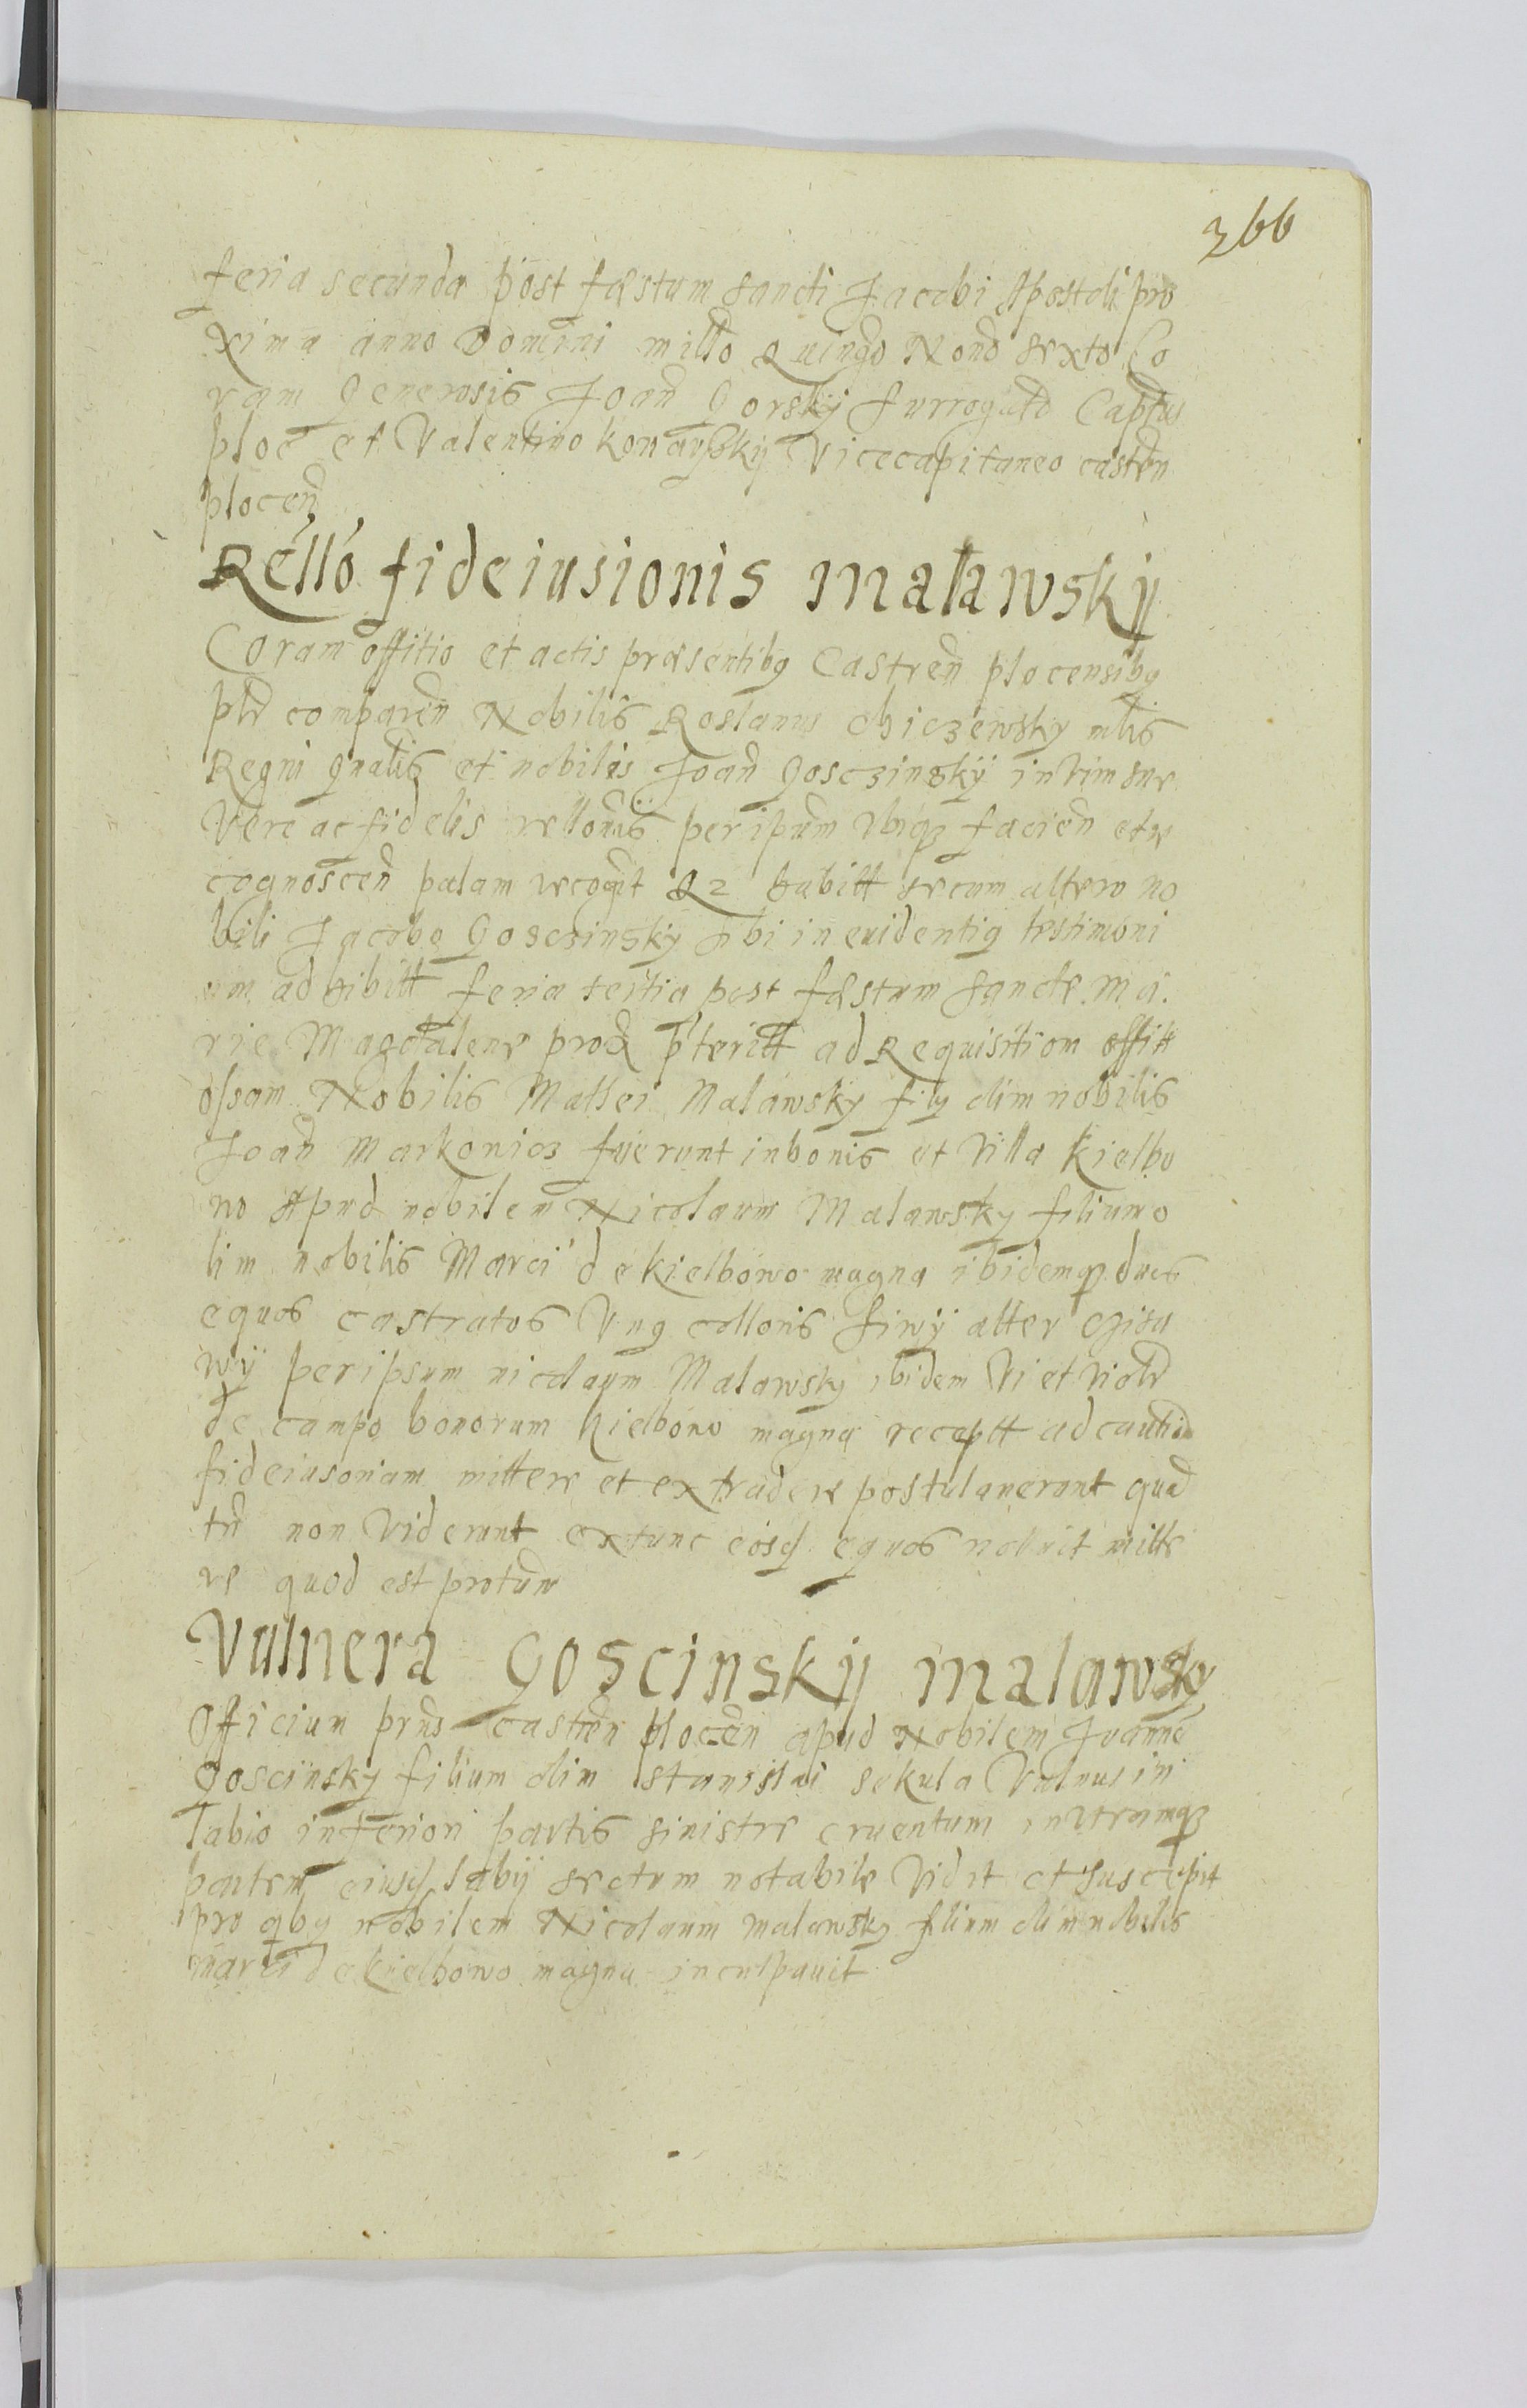 366
feria secunda post fæstum sancti Jacobi Apostoli pro
xima anno Domini millo Quingo Nono sexto Co
ram Generosis Joan Gorsky surrogato Captus
ploc et Valentino konarsky Vicecapitaneo castren
plocen
Rello fideiusionis Malawsky
Coram offitio et actis præsentibq Castren plocensibq
plr comparen Nobilis Roslanus chiczewsky mlis
Regni gnalis et nobilis Joan Gosczinsky in vim sue
vere ac fidelis rellonis per ipum Vbiqz facien et re
cognoscen palam recogit Qz habitt secum altero no
bili Jacobo Gosczinsky sibi in euidentiq testimoni
um adhibitt feria tertia post fæstum sancte Ma
rie Magdalene prox pteritt ad Requisitiom offitt
Nobilis Mathei Malawsky filij olim nobilis
Joan Markowicz fuerunt in bonis et Villa Kielbo
wo Apud nobilem Nicolaum Malawsky filium o
lim nobilis Marci de kielbowo magna ibidemqz duos
equos castratos Vnq colloris siwÿ alter czisa
wÿ per ipsum nicolaum Malawsky ibidem Vi et violr
de campo bonorum kielbowo magna receptt ad cautio
fideiusoriam mittere et extradere postulauerunt quod
tn non viderunt extunc eosd equos noluit mitte
re quod est protum
Vulnera Goscinsky malawsky
Officium prns castren plocen apud Nobilem Joanne
Goscinsky filium olim stanislai sekula Vulnus in
labio inferiori partis sinistre cruentum in Vtramqz
partem eiusd labÿ sectum notabile Vidit et suscepit
pro qbq nobilem Nicolaum malawsky filium olim nobilis
marci de kielbowo magna inculpauit